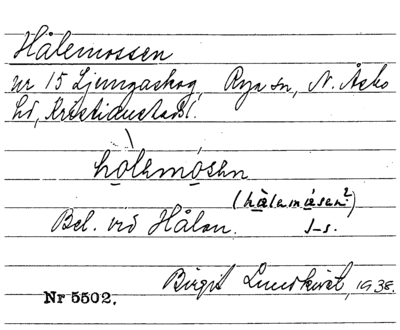 Hålemossen
nr 15 Ljungaskog, Rya sn, N. Åsbo
hd, Kristianstads l.
hòlemósen
(hàlemásen²)
Bel. vid Hålan. J-s.
Birgit Lundkvist, 1938.
Nr 5502.